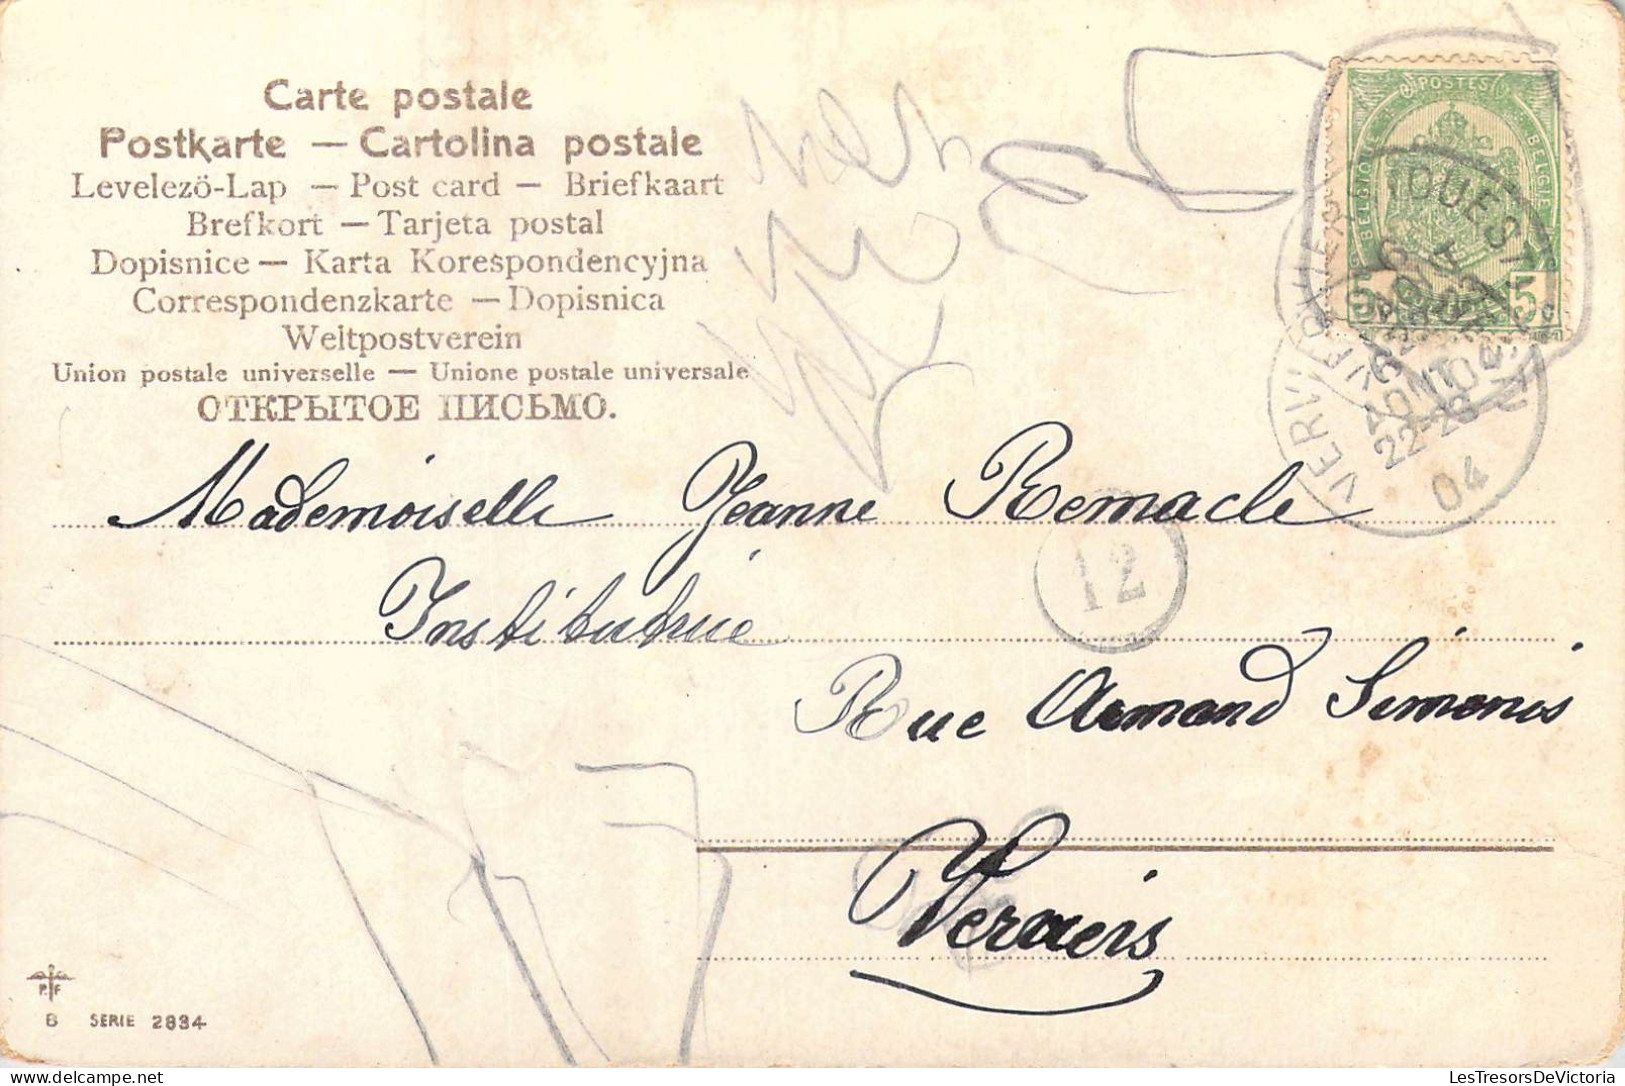 Carte postale
Postkarte — Cartolina postale
Levelező-Lap — Post card — Briefkaart
Brefkort — Tarjeta postal
Dopisnice — Karta Korespondencyjna
Correspondenzkarte — Dopisnica
Weltpostverein
Union postale universelle — Unione postale universale
ОТКРЫТОЕ ПИСЬМО.
POSTES
BELGIQUE BELGIË
5 5
22-23
04
Mademoiselle Jeanne Remacle
12
Institutrice
Rue Armand Simonis
Verviers
P. F
B SERIE 2834
LesTresorsDeVictoria